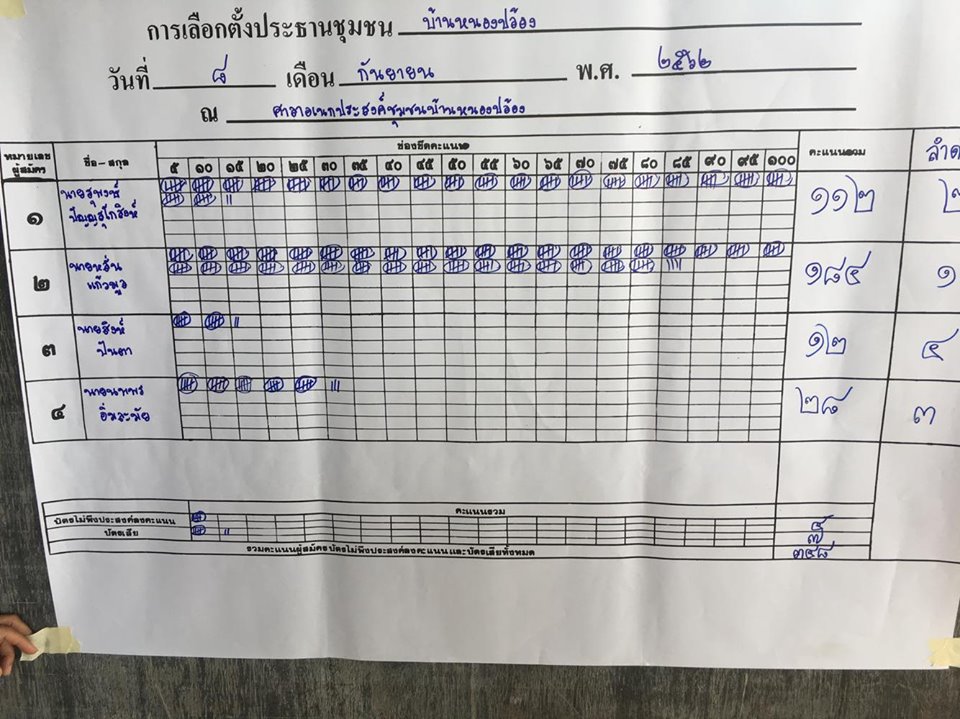 การเลือกตั้งประธานชุมชน บ้านหนองปล้อง
วันที่ ๘ เดือน กันยายน พ.ศ. ๒๕๖๒
ณ ศาลาอเนกประสงค์ชุมชนบ้านหนองปล้อง
หมายเลขผู้สมัคร ชื่อ-สกุล ช่องขีดคะแนน คะแนนรวม ลำด
๕ ๑๐ ๑๕ ๒๐ ๒๕ ๓๐ ๓๕ ๔๐ ๔๕ ๕๐ ๕๕ ๖๐ ๖๕ ๗๐ ๗๕ ๘๐ ๘๕ ๙๐ ๙๕ ๑๐๐
๑ นายสุพจน์ ๑๑๒ ๒
๒ นายหวั่น แก้วมูล ๑๘๔ ๑
๓ นายสิงห์ ปันตา ๑๒ ๔
๔ นายนพพร อิ่นระนัย ๒๘ ๓
คะแนนรวม
บัตรไม่พึงประสงค์ลงคะแนน ๕
บัตรเสีย ๗
รวมคะแนนผู้สมัคร บัตรไม่พึงประสงค์ลงคะแนน และบัตรเสียทั้งหมด ๓๔๘